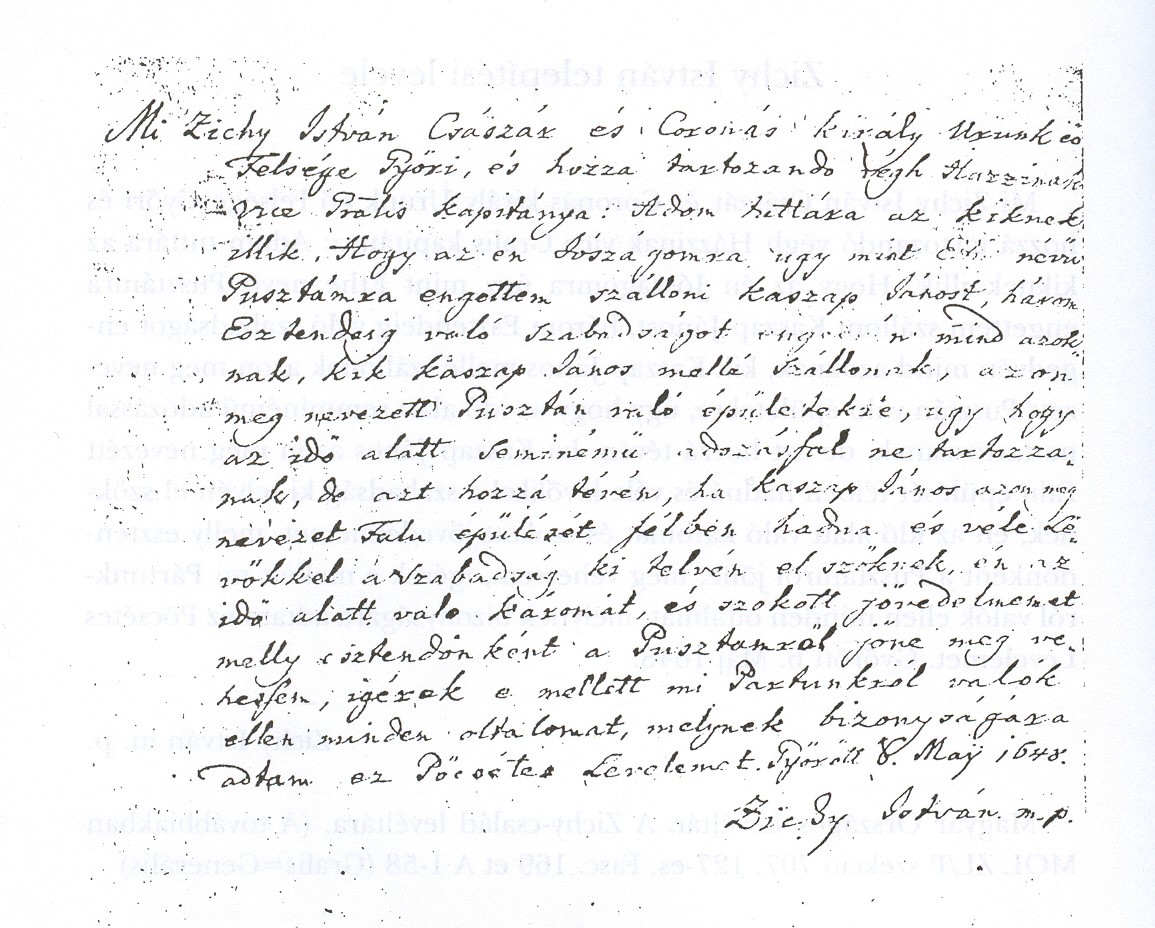 Mi Zichy István Császár és Coronás király Urunk eö
Felsége Győri, és hozza tartozando végh Hazzinak
vice Gralis kapitánya: Adom tuttára az kiknek
illik, Hogy az én Jószágomra ugy mint nevü
Pusztámra engettem szálloni Kaszap Jánost, három
Esztendeig való szabadságot engedvén mind azok
nak, kik Kaszap János mellé szállonak, azon
meg nevezett Pusztán való épületekre, ugy hogy
az idő alatt seminémü adozással ne tartozza,
nak, de azt hozzá tévén, ha Kaszap János azon meg
nevezet Falu épülését félben hadná és véle lé
vőkkel a szabadság ki telvén el szöknek, én az
idő alatt valo káromat és szokott jövedelmemet
melly esztendőnként a Pusztamról jőne meg ve,
hessem, igérek e mellett mi Partunkrol válok
ellen minden oltalomat, melynek bizonyságára
adtam ez Pöcsétes Levelemet. Győrött 6. Maÿ 1648.
Zichy István m. p.
Zichy István telepítési levele